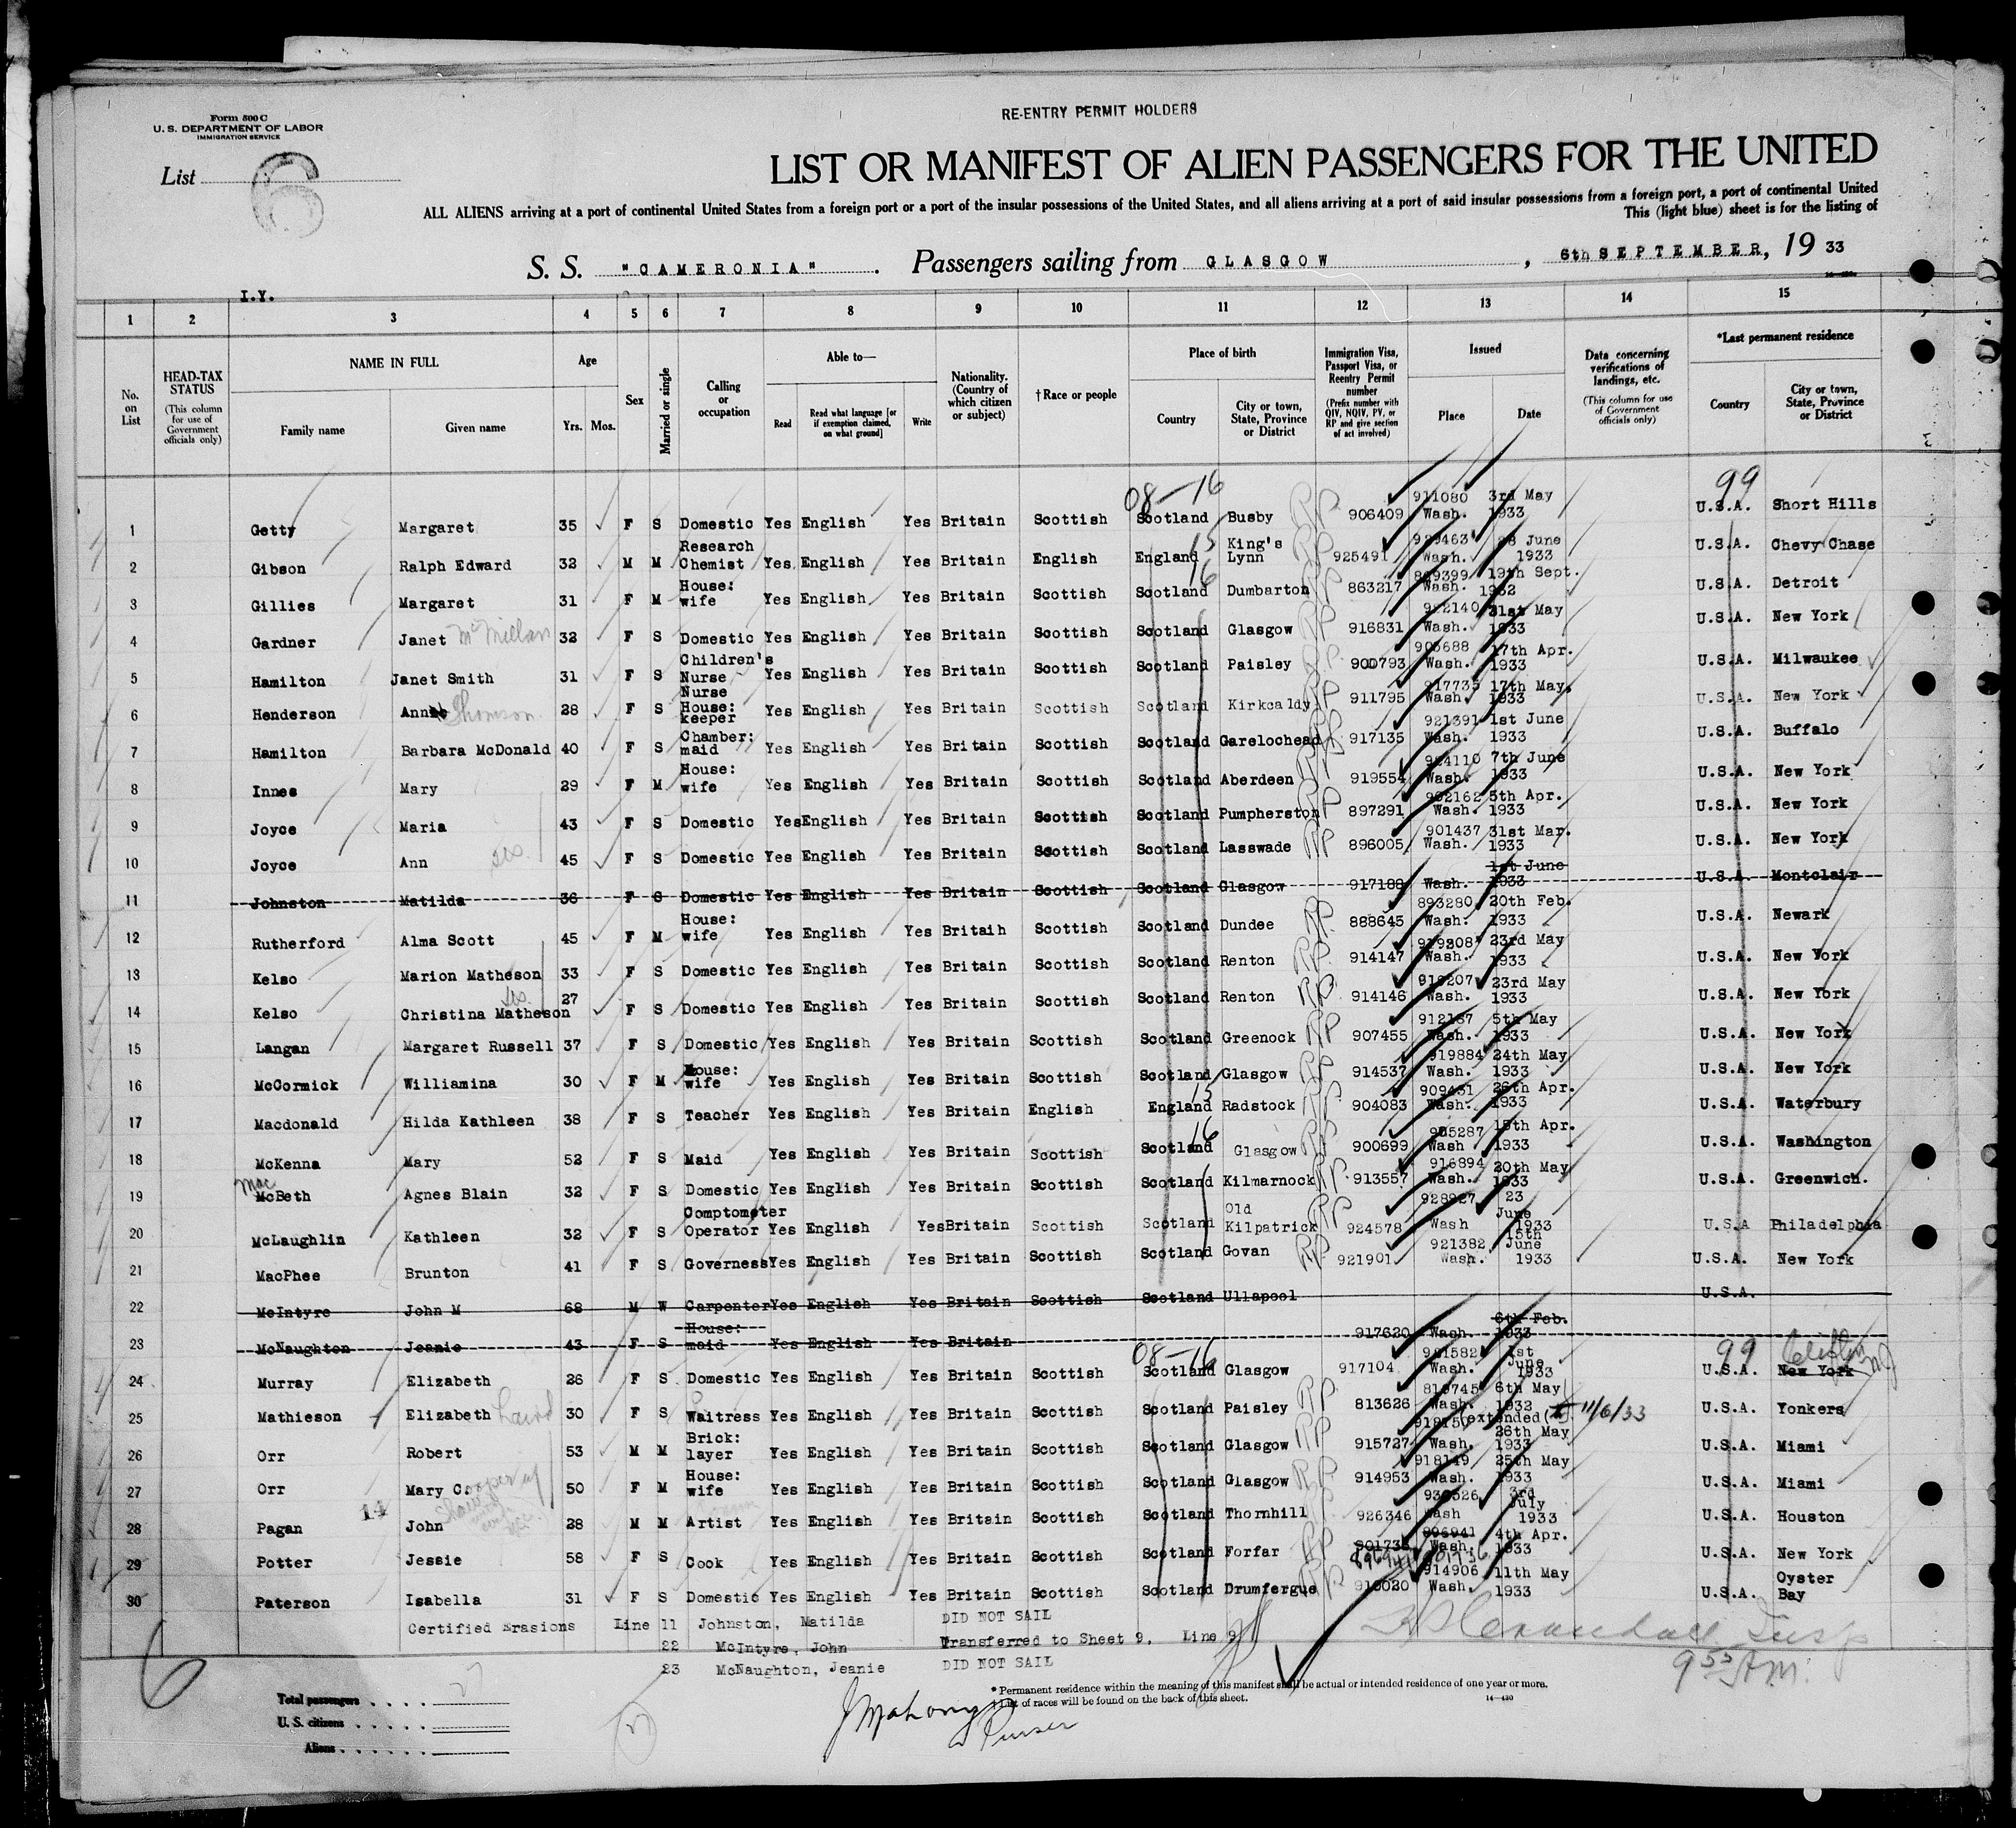 Form 500 C
U. S. DEPARTMENT OF LABOR
IMMIGRATION SERVICE
RE-ENTRY PERMIT HOLDERS
List 6
LIST OR MANIFEST OF ALIEN PASSENGERS FOR THE UNITED
ALL ALIENS arriving at a port of continental United States from a foreign port or a port of the insular possessions of the United States, and all aliens arriving at a port of said insular possessions from a foreign port, a port of continental United
This (light blue) sheet is for the listing of
S. S. "CAMERONIA". Passengers sailing from GLASGOW, 6th SEPTEMBER, 19 33
I.Y.
1 2 3 4 5 6 7 8 9 10 11 12 13 14 15
No. on List
HEAD-TAX STATUS (This column for use of Government officials only)
NAME IN FULL
Family name
Given name
Age
Yrs. Mos.
Sex
Married or single
Calling or occupation
Able to—
Read
Read what language [or if exemption claimed, on what ground]
Write
Nationality. (Country of which citizen or subject)
† Race or people
Place of birth
Country
City or town, State, Province or District
Immigration Visa, Passport Visa, or Reentry Permit number (Prefix number with QIV, NQIV, PV, or RP and give section of act involved)
Issued
Place
Date
Data concerning verifications of landings, etc. (This column for use of Government officials only)
*Last permanent residence
Country
City or town, State, Province or District
08-16 99
1 Getty Margaret 35 F S Domestic Yes English Yes Britain Scottish Scotland Busby RP 906409 911080 Wash. 3rd May 1933 U.S.A. Short Hills
2 Gibson Ralph Edward 32 M M Research Chemist Yes English Yes Britain English England 15 King's Lynn RP 925491 Wash. 28 June 1933 U.S.A. Chevy Chase
3 Gillies Margaret 31 F M House: wife Yes English Yes Britain Scottish Scotland 16 Dumbarton RP 863217 Wash. 19th Sept. 1932 U.S.A. Detroit
4 Gardner Janet McMillan 32 F S Domestic Yes English Yes Britain Scottish Scotland Glasgow RP 916831 922140 Wash. 31st May 1933 U.S.A. New York
5 Hamilton Janet Smith 31 F S Children's Nurse Yes English Yes Britain Scottish Scotland Paisley RP 900793 905688 Wash. 17th Apr. 1933 U.S.A. Milwaukee
6 Henderson Ann Thomson 28 F S Nurse House: keeper Yes English Yes Britain Scottish Scotland Kirkcaldy RP 911795 917735 Wash. 17th May. 1933 U.S.A. New York
7 Hamilton Barbara McDonald 40 F S Chamber: maid Yes English Yes Britain Scottish Scotland Garelochead RP 917135 921391 Wash. 1st June 1933 U.S.A. Buffalo
8 Innes Mary 29 F M House: wife Yes English Yes Britain Scottish Scotland Aberdeen RP 919554 924110 Wash. 7th June 1933 U.S.A. New York
9 Joyce Maria 43 F S Domestic Yes English Yes Britain Scottish Scotland Pumpherston RP 897291 902162 Wash. 5th Apr. 1933 U.S.A. New York
10 Joyce Ann sis. 45 F S Domestic Yes English Yes Britain Scottish Scotland Lasswade RP 896005 901437 Wash. 31st Mar. 1933 U.S.A. New York
11 Johnston Matilda 36 F S Domestic Yes English Yes Britain Scottish Scotland Glasgow 917188 Wash. 1st June 1933 U.S.A. Montclair
12 Rutherford Alma Scott 45 F M House: wife Yes English Yes Britaih Scottish Scotland Dundee RP. 888645 893280 Wash. 20th Feb. 1933 U.S.A. Newark
13 Kelso Marion Matheson 33 F S Domestic Yes English Yes Britain Scottish Scotland Renton RP. 914147 919208 Wash. 23rd May 1933 U.S.A. New York
14 Kelso Christina Matheson sis. 27 F S Domestic Yes English Yes Britain Scottish Scotland Renton RP 914146 919207 Wash. 23rd May 1933 U.S.A. New York
15 Langan Margaret Russell 37 F S Domestic Yes English Yes Britain Scottish Scotland Greenock RP 907455 912187 Wash. 5th May 1933 U.S.A. New York
16 McCormick Williamina 30 F M House: wife Yes English Yes Britain Scottish Scotland Glasgow RP 914537 919884 Wash. 24th May 1933 U.S.A. New York
17 Macdonald Hilda Kathleen 38 F S Teacher Yes English Yes Britain English England 15 Radstock RP 904083 909431 Wash. 26th Apr. 1933 U.S.A. Waterbury
18 McKenna Mary 52 F S Maid Yes English Yes Britain Scottish Scotland 16 Glasgow RP 900699 905287 Wash 15th Apr. 1933 U.S.A. Washington
19 Mac McBeth Agnes Blain 32 F S Domestic Yes English Yes Britain Scottish Scotland Kilmarnock RP. 913557 916894 Wash. 20th May 1933 U.S.A. Greenwich.
20 McLaughlin Kathleen 32 F S Comptometer Operator Yes English Yes Britain Scottish Scotland Old Kilpatrick RP 924578 928927 Wash 23 June 1933 U.S.A Philadelphia
21 MacPhee Brunton 41 F S Governess Yes English Yes Britain Scottish Scotland Govan RP. 921901 921382 Wash. 15th June 1933 U.S.A. New York
22 McIntyre John M 68 M W Carpenter Yes English Yes Britain Scottish Scotland Ullapool U.S.A.
23 McNaughton Jeanie 43 F S House: maid Yes English Yes Britain 917620 Wash. 6th Feb. 1933
08-16 99
24 Murray Elizabeth 26 F S Domestic Yes English Yes Britain Scottish Scotland Glasgow 917104 921582 Wash. 1st June 1933 U.S.A. New York Clifton NJ
25 Mathieson Elizabeth Laird 30 F S Waitress Yes English Yes Britain Scottish Scotland Paisley RP 813626 819745 Wash. 6th May 1932 (extended) 11/6/33 U.S.A. Yonkers
26 Orr Robert 53 M M Brick: layer Yes English Yes Britain Scottish Scotland Glasgow RP 915727 919150 Wash. 26th May 1933 U.S.A. Miami
27 Orr Mary Cooper wf 50 F M House: wife Yes English Yes Britain Scottish Scotland Glasgow RP 914953 918149 Wash. 25th May 1933 U.S.A. Miami
28 Pagan John 28 M M Artist Yes English Yes Britain Scottish Scotland Thornhill 926346 930526 Wash 3rd July 1933 U.S.A. Houston
29 Potter Jessie 58 F S Cook Yes English Yes Britain Scottish Scotland Forfar RP 901736 896941 Wash. 4th Apr. 1933 U.S.A. New York
30 Paterson Isabella 31 F S Domestic Yes English Yes Britain Scottish Scotland Drumfergue RP 910020 914906 Wash. 11th May 1933 U.S.A. Oyster Bay
Certified Erasions Line 11 Johnston, Matilda DID NOT SAIL
22 McIntyre, John Transferred to Sheet 9. Line 9
23 McNaughton, Jeanie DID NOT SAIL
6
9 55 AM.
Total passengers . . . . 27
U. S. citizens . . . . .
Aliens . . . . . .
J Mahony
Purser
* Permanent residence within the meaning of this manifest shall be actual or intended residence of one year or more.
† List of races will be found on the back of this sheet.
14—430